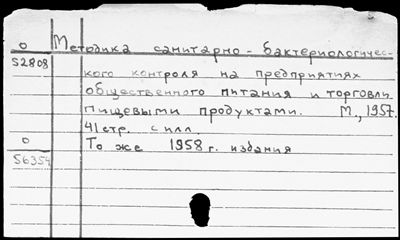 О Методика санитарно-бактериологичес-
52808 кого контроля на предприятиях
общественного питания и торговли
пищевыми продуктами. М., 1957.
41 стр. с илл.
О То же 1958 г. издания
56354